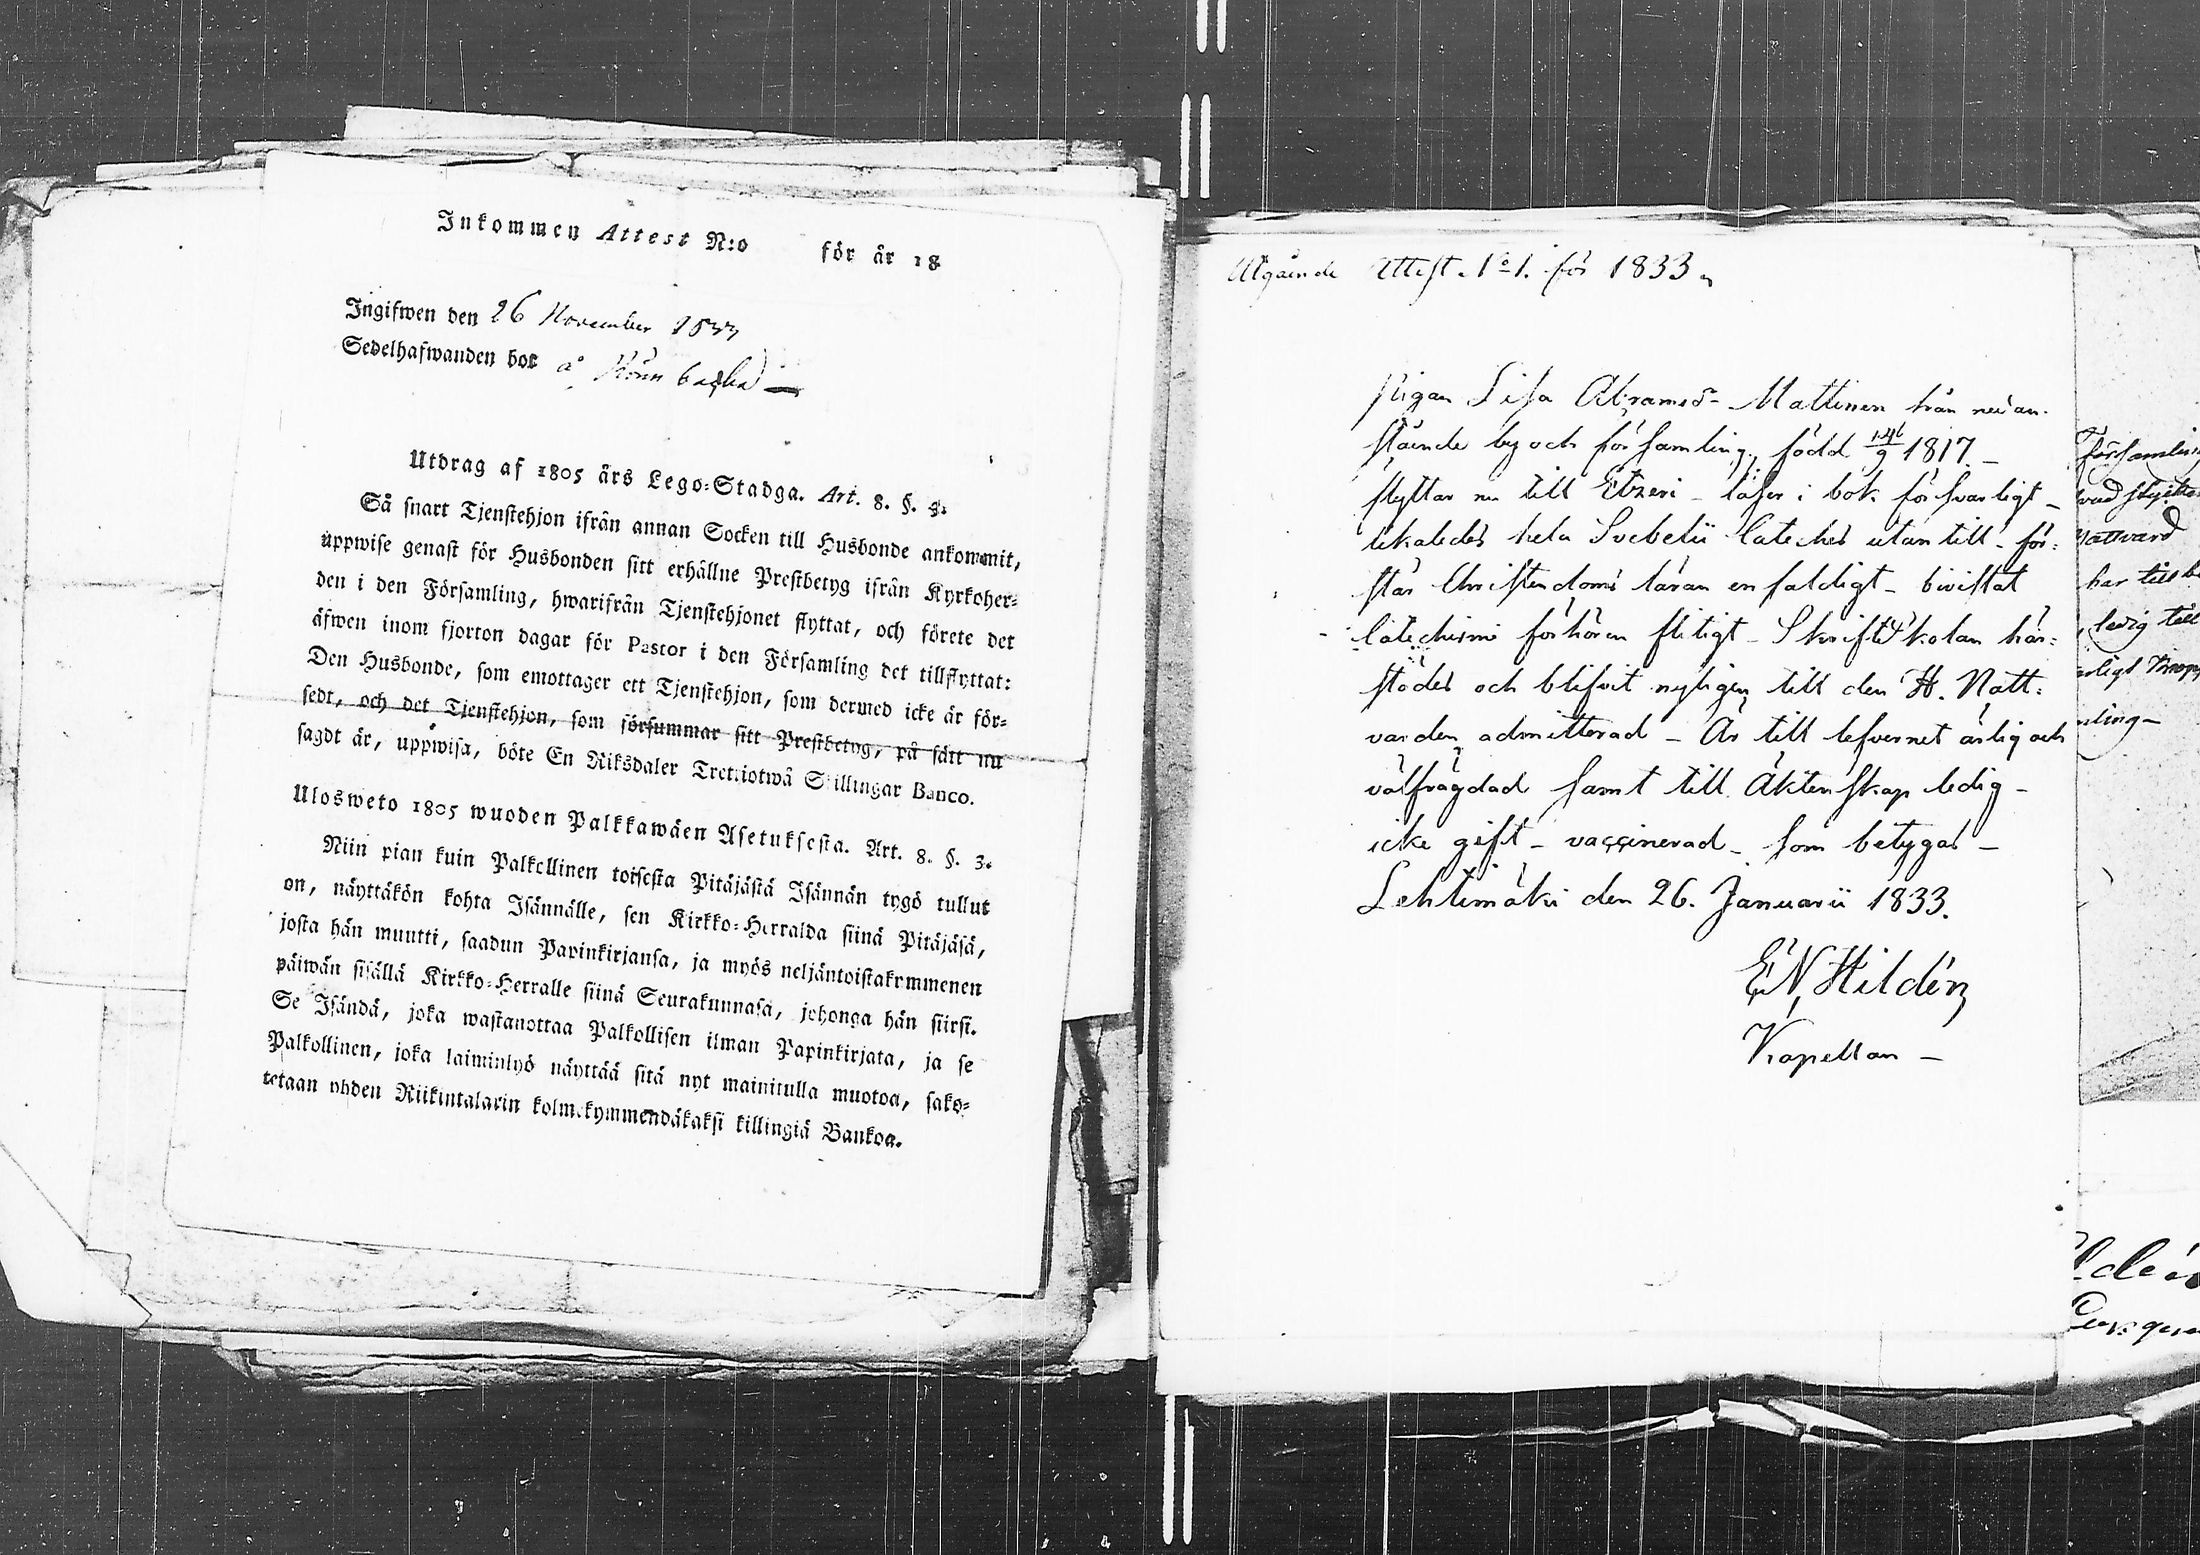 Inkommen Attest N:o för år 18
Ingifwen den 26 November 1833
Sedelhafwanden bor å
Utdrag af 1805 års Lego-Stadga. Art. 8. §. 3.
Så snart Tjenstehjon ifrån annan Socken till Husbonde ankommit,
uppwise genast för Husbonden sitt erhållne Prestbetyg ifrån Kyrkoher-
den i den Församling, hwarifrån Tjenstehjonet flyttat, och förete det
äfwen inom fjorton dagar för Pastor i den Församling det tillflyttat:
Den Husbonde, som emottager ett Tjenstehjon, som dermed icke är för-
sedt, och det Tjenstehjon, som försummar sitt Prestbetyg, på sätt nu
sagdt är, uppwisa, böte En Riksdaler Trettiotwå Skillingar Banco.
Ulosweto 1805 wuoden Palkkawäen Asetuksesta. Art. 8. §. 3.
Niin pian kuin Palkollinen toisesta Pitäjästä Isännän tygö tullut
on, näyttäkön kohta Isännälle, sen Kirkko-Herralda siinä Pitäjäsä,
josta hän muutti, saadun Papinkirjansa, ja myös neljäntoistakymmenen
päiwän sisällä Kirkko-Herralle siinä Seurakunnasa, johonga hän siirsi.
Se Isändä, joka wastanottaa Palkollisen ilman Papinkirjata, ja se
Palkollinen, joka laiminlyö näyttää sitä nyt mainitulla muotoa, sako-
tetaan yhden Riikintalarin kolmekymmendäkaksi killingiä Bankoa.
Utgående Attest. No 1. för 1833
Pigan Lisa Abramsdr Mattinen från nedan-
stående by och församling, född 9 1817 -
flyttar nu till Etzeri - läser i bok försvarligt -
likaledes hela Svebelii Cateches utantill - för-
står Christendoms läran enfaldigt - bivistat
Catechismi förhören flitigt - Skriftskolan här-
städes och blifvit nyligen till den H. Natt-
varden admitterad - Är till lefvernet ärlig och
välfrägdad samt till Äktenskap ledig -
icke gift - vaccinerad - som betygas -
Lehtimäki den 26. Januarii 1833.
EN Hildén
Kapellan -
Församling
Nattvard
har till
ledig till